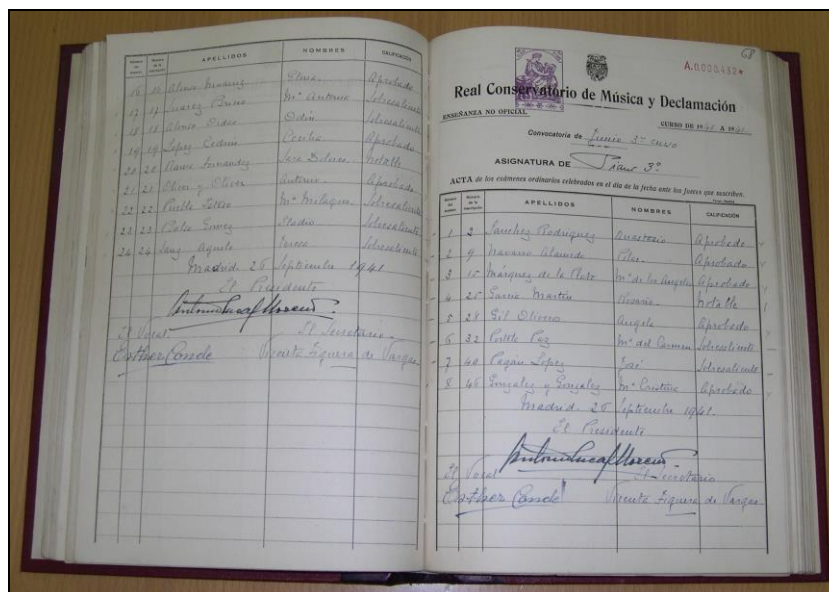 APELLIDOS NOMBRES CALIFICACIÓN
16 16 Aprobado
17 17 Suarez Mª Antonia Sobresaliente
18 18 Alonso Odón Sobresaliente
19 19 Lopez Cecilia Aprobado
20 20 Notable
21 21 Oliver y Oliver Antonio Aprobado
22 22 Mª Milagros Sobresaliente
23 23 Eladio Sobresaliente
24 24 Sanz Agudo Teresa Sobresaliente
Madrid 26 Septiembre 1941
El Presidente
Antonio Lucas Moreno
El Vocal El Secretario
Esther Conde Vicenta Figuera de Vargas
68
A.0,000,432*
Real Conservatorio de Música y Declamación
ENSEÑANZA NO OFICIAL
CURSO DE 1941 A 19
Convocatoria de Junio 3er curso
ASIGNATURA DE Piano 3º
ACTA de los exámenes ordinarios celebrados en el día de la fecha ante los Jueces que suscriben.
APELLIDOS NOMBRES CALIFICACIÓN
1 2 Sanchez Rodriguez Anastasio Aprobado
2 9 Navarro Alameda Pilar Aprobado
3 15 Márquez de la Plata Mª de los Angeles Aprobado
4 25 Garcia Martin Rosario Notable
5 28 Gil Angela Aprobado
6 32 Paz Mª del Carmen Sobresaliente
7 40 Pagan Lopez José Sobresaliente
8 46 Gonzalez y Gonzalez Mª Cristina Aprobado
Madrid 26 Septiembre 1941.
El Presidente
Antonio Lucas Moreno
El Vocal El Secretario
Esther Conde Vicenta Figuera de Vargas